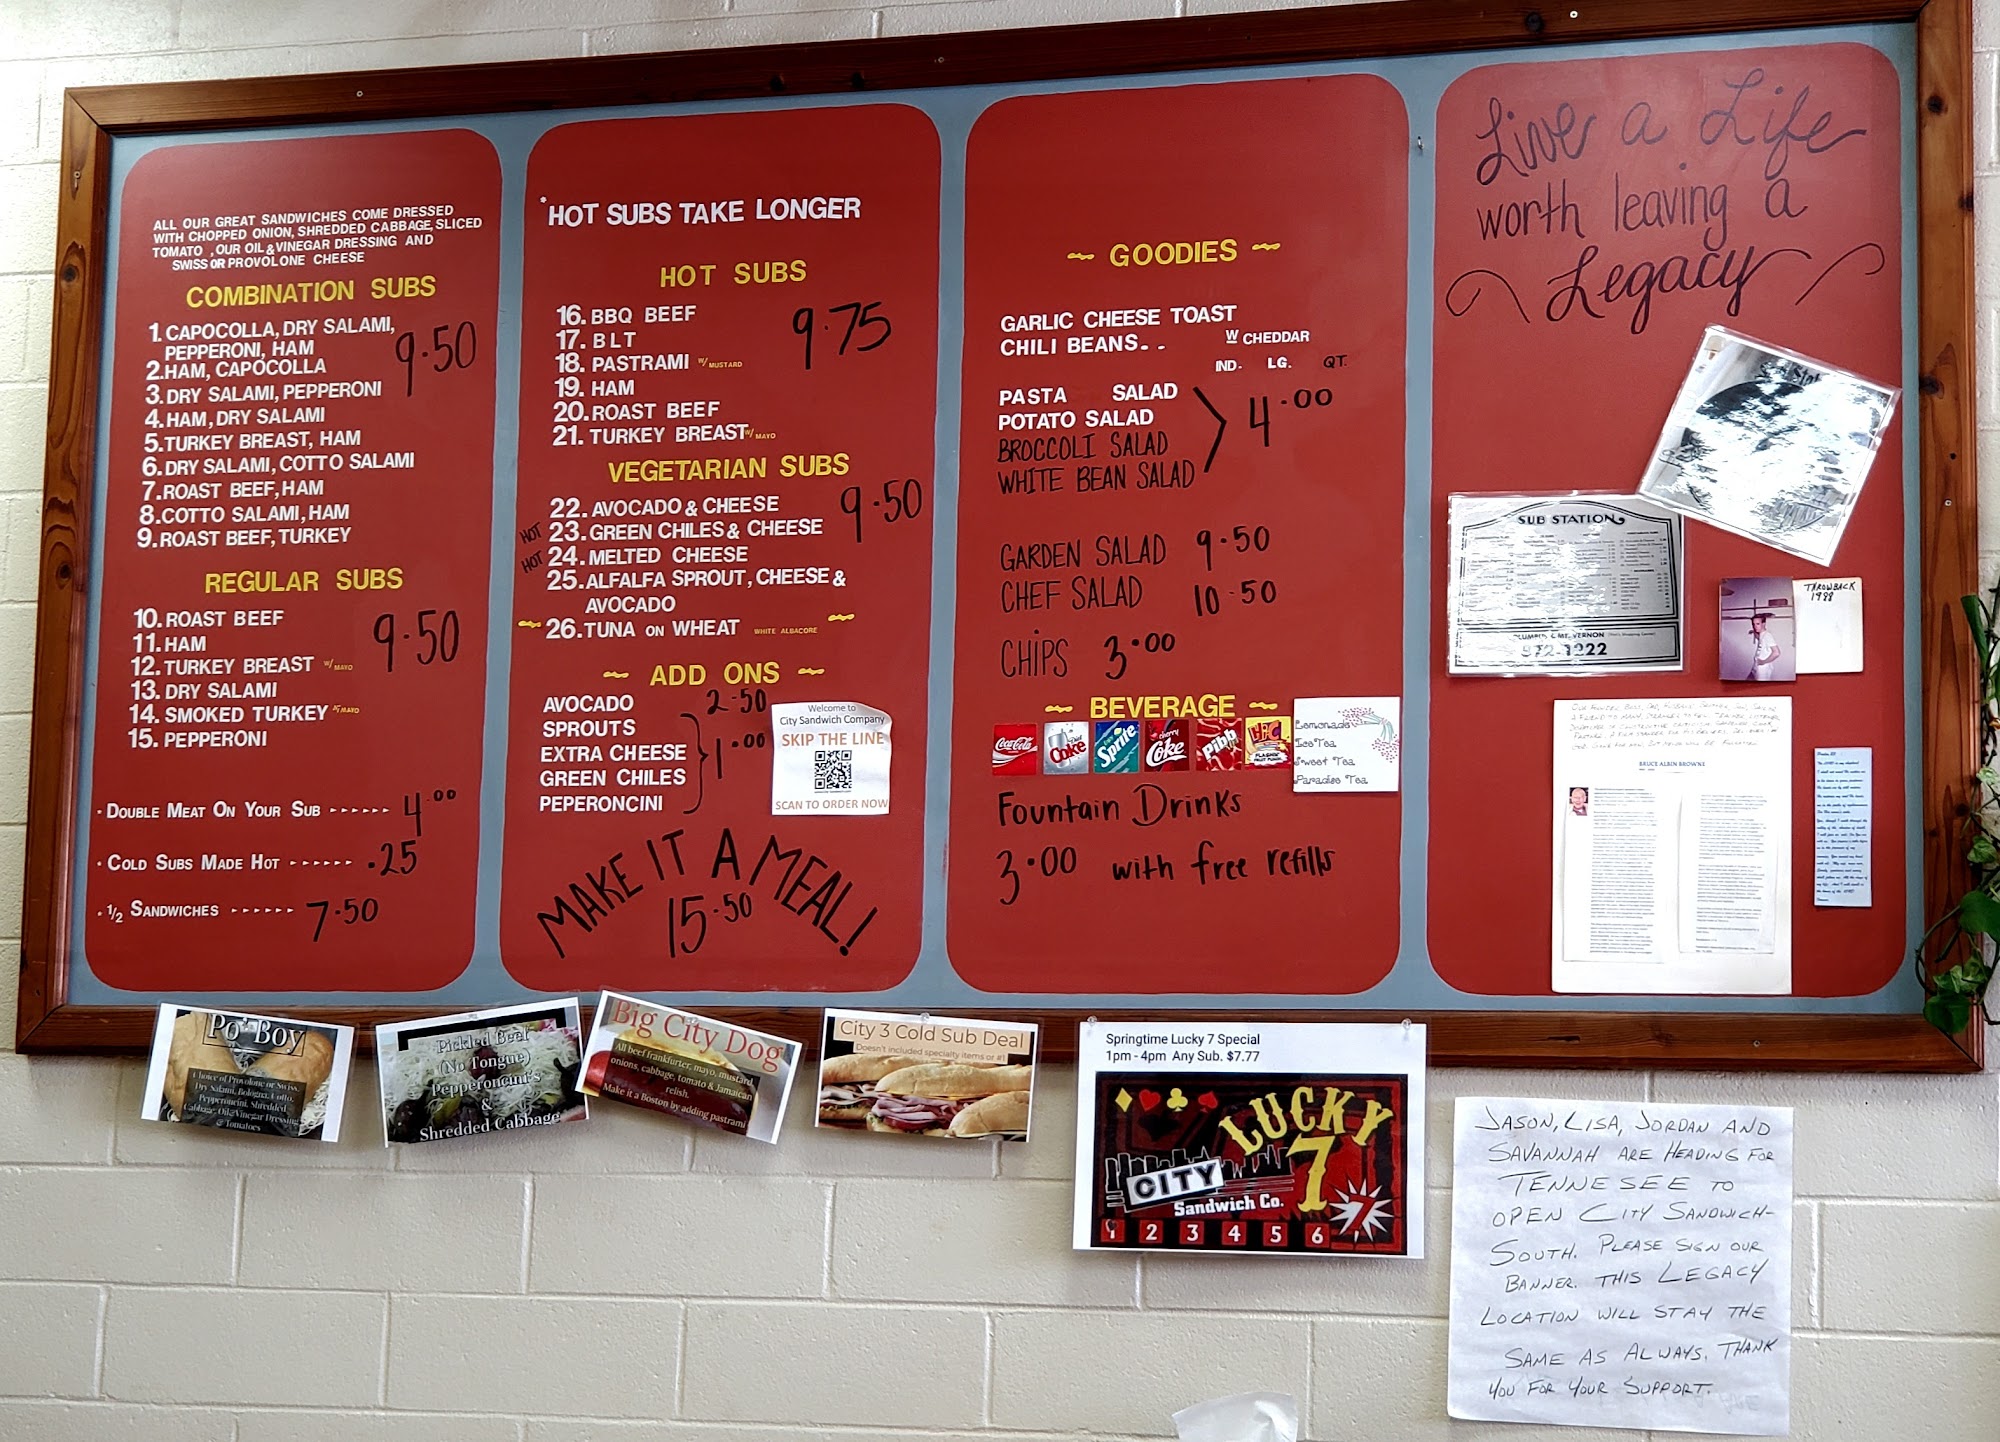 ALL OUR GREAT SANDWICHES COME DRESSED
WITH CHOPPED ONION, SHREDDED CABBAGE, SLICED
TOMATO , OUR OIL & VINEGAR DRESSING AND
SWISS OR PROVOLONE CHEESE
COMBINATION SUBS
1. CAPOCOLLA, DRY SALAMI,
PEPPERONI, HAM
9.50
2. HAM, CAPOCOLLA
3. DRY SALAMI, PEPPERONI
4. HAM, DRY SALAMI
5. TURKEY BREAST, HAM
6. DRY SALAMI, COTTO SALAMI
7. ROAST BEEF, HAM
8. COTTO SALAMI, HAM
9. ROAST BEEF, TURKEY
REGULAR SUBS
10. ROAST BEEF
11. HAM
9.50
12. TURKEY BREAST W/ MAYO
13. DRY SALAMI
14. SMOKED TURKEY W/ MAYO
15. PEPPERONI
• DOUBLE MEAT ON YOUR SUB ------ 4.00
• COLD SUBS MADE HOT ------ .25
• 1/2 SANDWICHES ------ 7.50
*HOT SUBS TAKE LONGER
HOT SUBS
16. BBQ BEEF
17. BLT
9.75
18. PASTRAMI W/ MUSTARD
19. HAM
20. ROAST BEEF
21. TURKEY BREAST W/ MAYO
VEGETARIAN SUBS
22. AVOCADO & CHEESE
9.50
HOT 23. GREEN CHILES & CHEESE
HOT 24. MELTED CHEESE
25. ALFALFA SPROUT, CHEESE &
AVOCADO
~ 26. TUNA ON WHEAT WHITE ALBACORE ~
~ ADD ONS ~
AVOCADO 2.50
SPROUTS
EXTRA CHEESE 1.00
GREEN CHILES
PEPERONCINI
Welcome to
City Sandwich Company
SKIP THE LINE
SCAN TO ORDER NOW
MAKE IT A MEAL!
15.50
~ GOODIES ~
GARLIC CHEESE TOAST
CHILI BEANS.. W CHEDDAR
IND. LG. QT.
PASTA SALAD
POTATO SALAD 4.00
BROCCOLI SALAD
WHITE BEAN SALAD
GARDEN SALAD 9.50
CHEF SALAD 10.50
CHIPS 3.00
~ BEVERAGE ~
Coca-Cola
Diet Coke
Sprite
cherry Coke
Pibb
Hi-C
Lemonade
Ice Tea
Sweet Tea
Paradise Tea
Fountain Drinks
3.00 with free refills
Live a Life
worth leaving a
Legacy
SUB STATION
THROWBACK
1988
BRUCE ALBIN BROWNE
Po' Boy
Choice of Provolone or Swiss,
Dry Salami, Bologna, Cotto,
Pepperoncini, Shredded
Cabbage, Oil & Vinegar Dressing
& Tomatoes
Pickled Beef
(No Tongue)
Pepperoncini's
&
Shredded Cabbage
Big City Dog
All beef frankfurter, mayo, mustard,
onions, cabbage, tomato & Jamaican
relish.
Make it a Boston by adding pastrami
City 3 Cold Sub Deal
Doesn't included specialty items or #1
Springtime Lucky 7 Special
1pm - 4pm Any Sub. $7.77
LUCKY
7
CITY
Sandwich Co.
1 2 3 4 5 6 7
JASON, LISA, JORDAN AND
SAVANNAH ARE HEADING FOR
TENNESEE TO
OPEN CITY SANDWICH-
SOUTH. PLEASE SIGN OUR
BANNER. THIS LEGACY
LOCATION WILL STAY THE
SAME AS ALWAYS. THANK
YOU FOR YOUR SUPPORT.